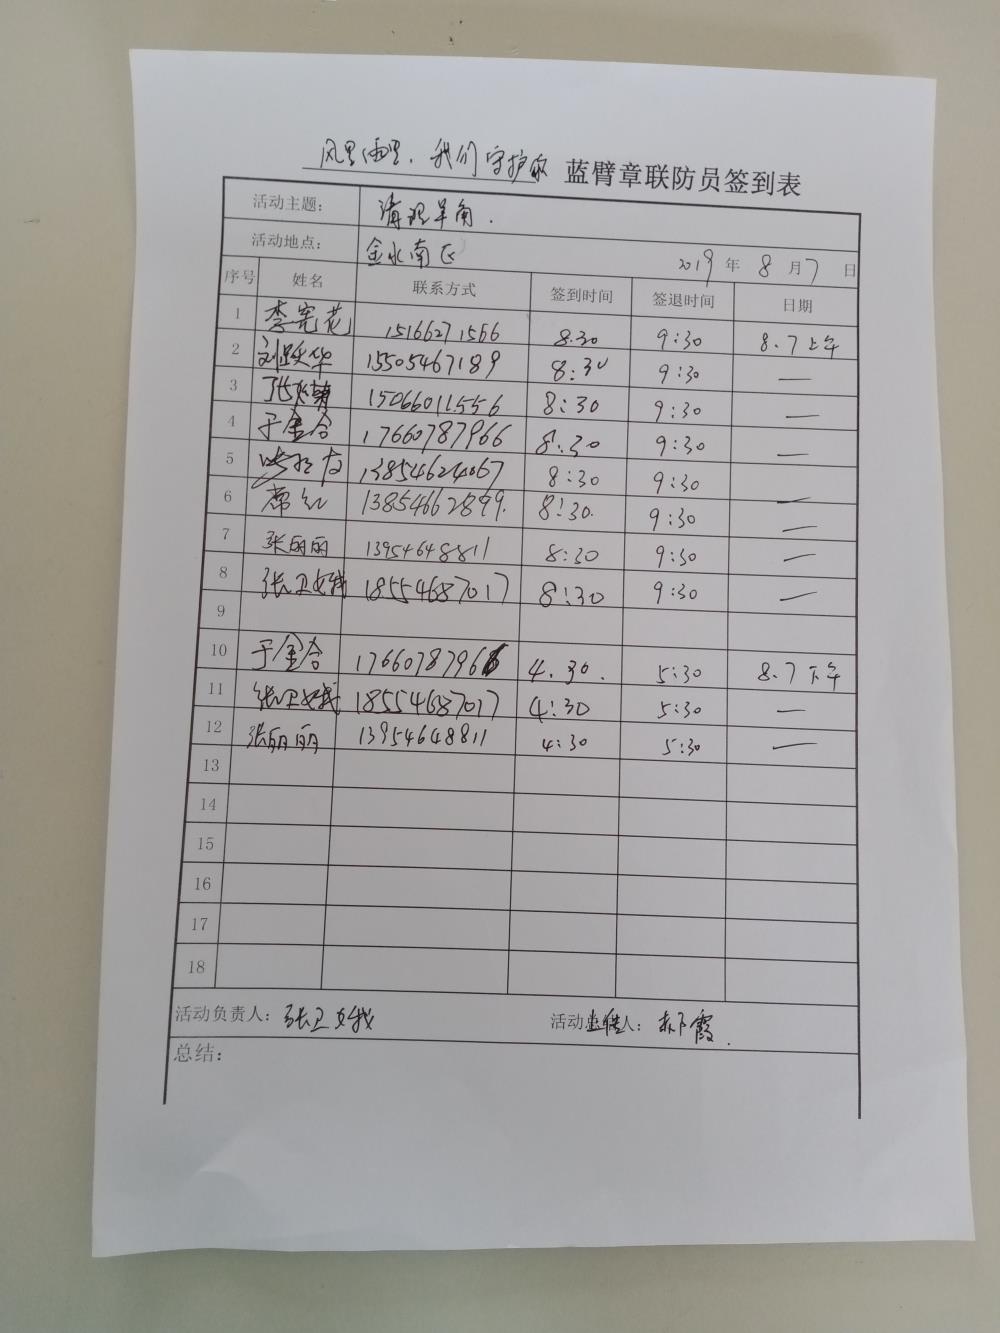 风里雨里,我们守护你 蓝臂章联防员签到表
活动主题: 清理羊角.
活动地点: 金水南区 2019年8月7日
序号 姓名 联系方式 签到时间 签退时间 日期
1 李宪花 15166271566 8.30 9:30 8.7上午
2 刘跃华 15505467189 8:30 9:30 —
3 张 15066011556 8:30 9:30 —
4 于金合 17660787966 8:30 9:30 —
5 13854624067 8:30 9:30 —
6 席红 13854662899. 8:30. 9:30 —
7 张丽丽 13954648811 8:30 9:30 —
8 张卫娥 18554687017 8:30 9:30 —
9
10 于金合 17660787966 4.30. 5:30 8.7下午
11 张卫娥 18554687017 4:30 5:30 —
12 张丽丽 13954648811 4:30 5:30 —
13
14
15
16
17
18
活动负责人: 张卫娥 活动 人: 郝霞.
总结: